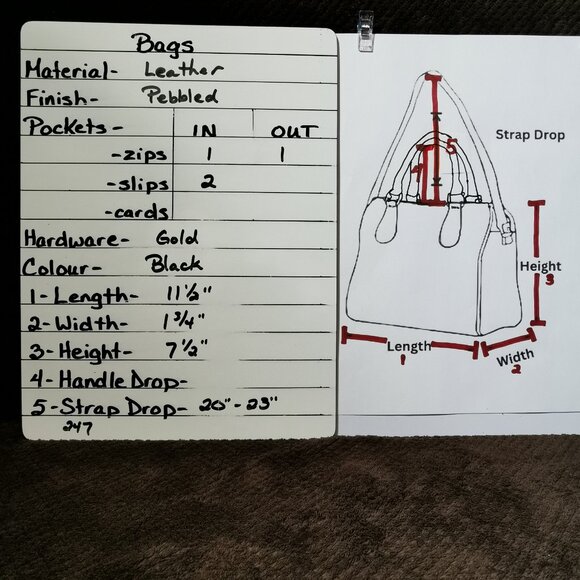 Bags
Material- Leather
Finish- Pebbled
Pockets- IN OUT
-zips 1 1
-slips 2
-cards
Hardware- Gold
Colour- Black
1-Length- 11 1/2"
2-Width- 1 3/4"
3-Height- 7 1/2"
4-Handle Drop-
5-Strap Drop- 20"-23"
247
Strap Drop
5
4
Height
3
Length
1
Width
2